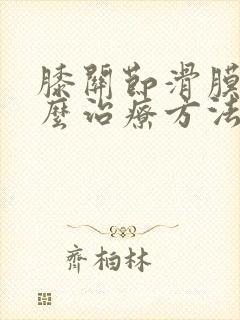 膝關節滑膜
麼治療方法
齊柏林